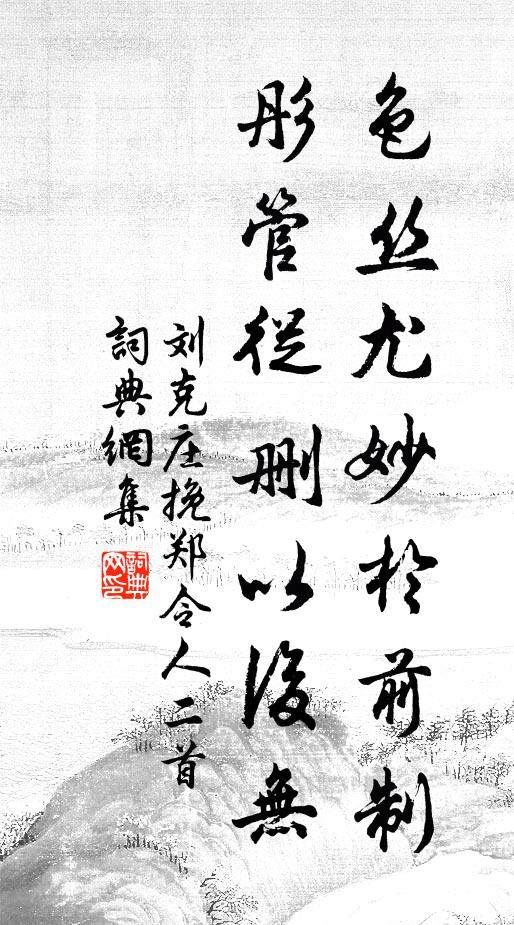 色丝尤妙於前制
彤管從删以後無
刘克庄挽郑令人二首
詞典網集
詞典網印